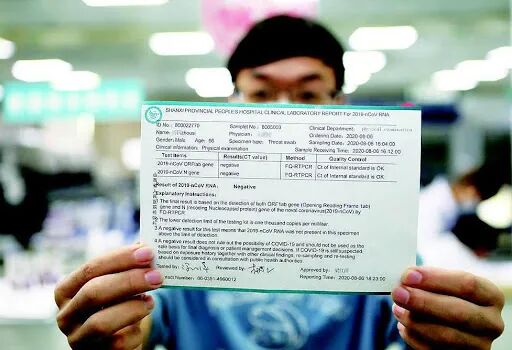 SHANXI PROVINCIAL PEOPLE'S HOSPITAL CLINICAL LABORATORY REPORT For 2019-nCoV RNA
ID No.: 800022770 Samplet No.: 8005003 Clinical Department: physical examination
Name: Physician: Ordering Date: 2020-08-06
Gender: Male Age: 66 Specimen type: Throat swab Sampling Time: 2020-08-06 16:04:00
Clinical information: Physical examination Sample Receiving Time: 2020-08-06 16:12:00
Test Items Results(CT value) Method Quality Control
2019-nCoV ORF1ab gene negative FQ-RTPCR Ct of Internal standard is OK
2019-nCoV N gene negative FQ-RTPCR Ct of Internal standard is OK
Result of 2019-nCoV RNA: Negative
Explanatory Instructions:
1.The final result is based on the detection of both ORF1ab gene (Opening Reading Frame 1ab)
gene and N (encoding Nucleocapsid protein) gene of the novel coronavirus(2019-nCoV) by
FQ-RTPCR.
2.The lower detection limit of the testing kit is one thousand copies per milliliter.
3.A negative result for this test means that 2019-nCoV RNA was not present in this specimen
above the limit of detection.
4.A negative result does not rule out the possibility of COVID-19 and should not be used as the
sole basis for final diagnosis or patient management decisions. If COVID-19 is still suspected
based on exposure history together with other clinical findings, re-sampling and re-testing
should be considered in consultation with public health authorities.
Tested by: Reviewed by: Approved by:
Contact Number: 86-0351-4960012 Reporting Time: 2020-08-06 18:23:00